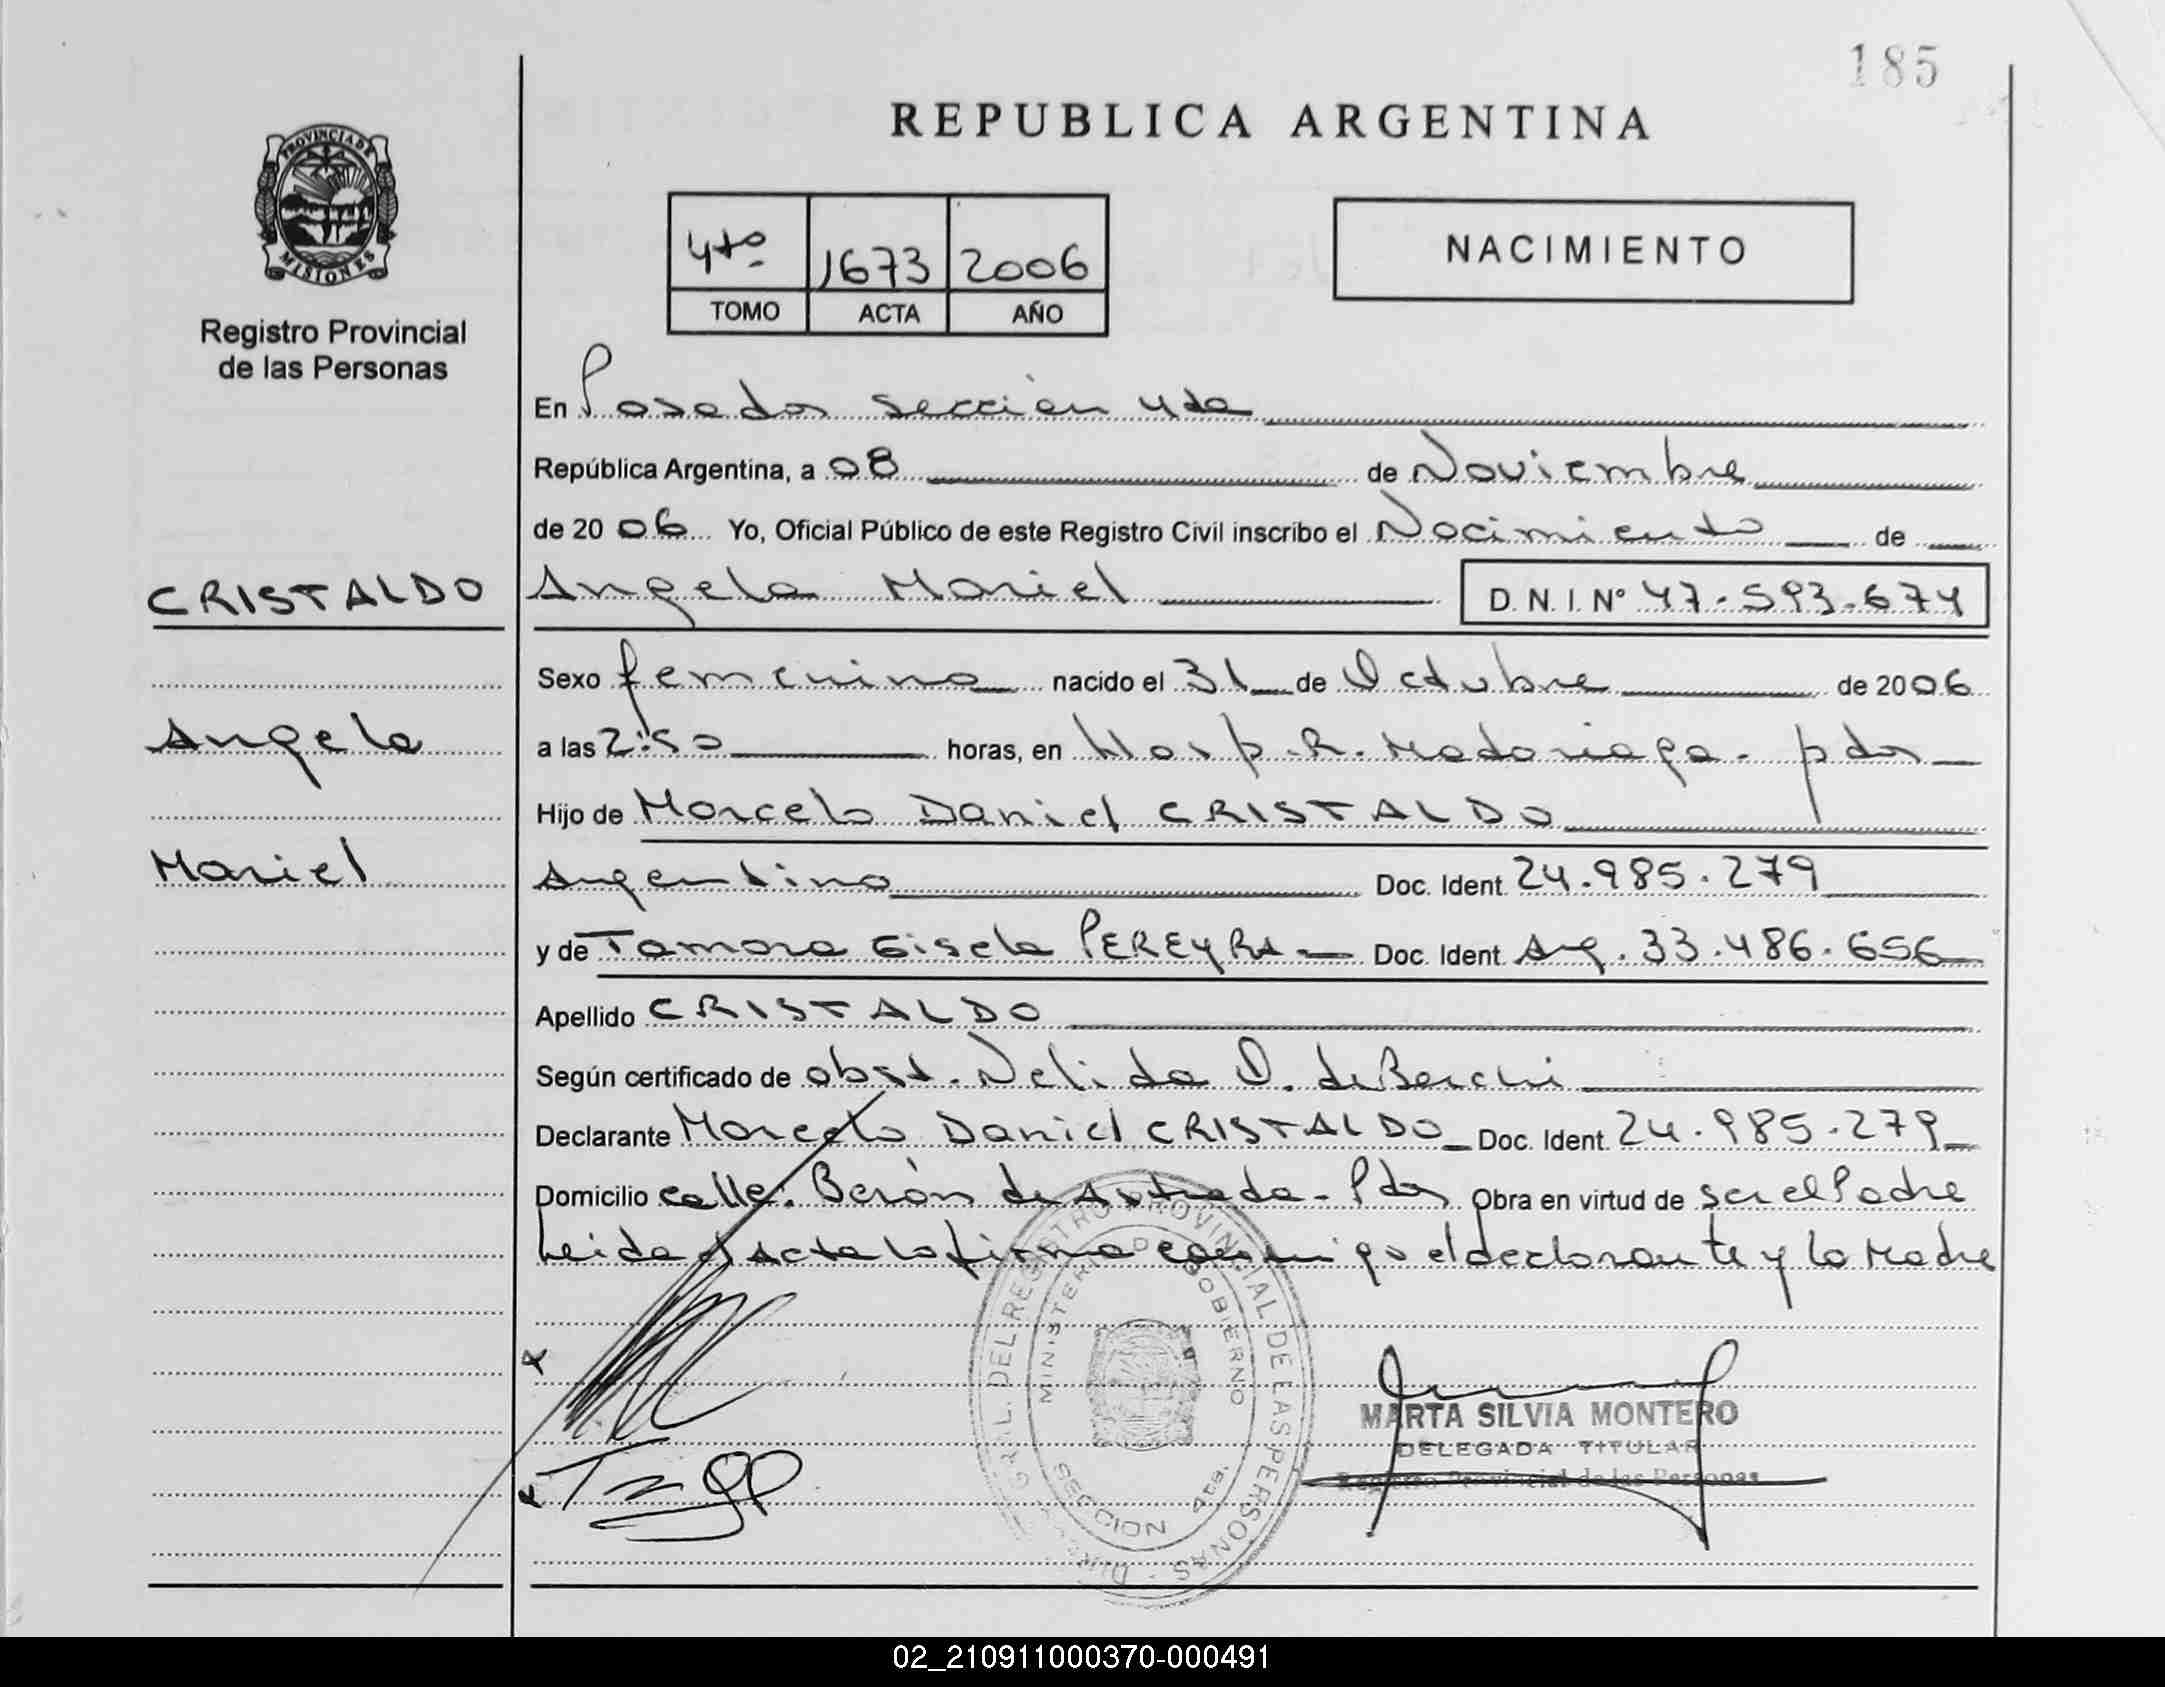 185
REPUBLICA ARGENTINA
PROVINCIA DE
MISIONES
Registro Provincial
de las Personas
4to 1673 2006
TOMO ACTA AÑO
NACIMIENTO
En Posadas sección 4ta
República Argentina, a 08 de Noviembre
de 20 06 Yo, Oficial Público de este Registro Civil inscribo el Nacimiento de
CRISTALDO
Angela Mariel D. N. I. N° 47.593.674
Sexo femenino nacido el 31 de Octubre de 2006
Angela
a las 2:50 horas, en Hosp. R. Madariaga - pdas
Hijo de Marcelo Daniel CRISTALDO
Mariel
Argentino Doc. Ident. 24.985.279
y de Tamara Gisela PEREYRA Doc. Ident. Arg. 33.486.656
Apellido CRISTALDO
Según certificado de obst. Nelida O. de
Declarante Marcelo Daniel CRISTALDO Doc. Ident. 24.985.279
Domicilio calle: Berón de Astrada - Pdas Obra en virtud de ser el Padre
Leida el Acta la firma conmigo el declarante y la Madre
GRAL. DEL REGISTRO PROVINCIAL DE LAS PERSONAS
MINISTERIO DE GOBIERNO
SECCION 4ta.
MARTA SILVIA MONTERO
DELEGADA TITULAR
Registro Provincial de las Personas
02_210911000370-000491